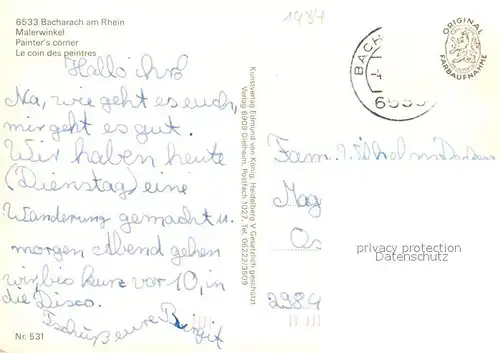 6533 Bacharach am Rhein
Malerwinkel
Painter's corner
Le coin des peintres
1984
Hallo ihr
Na, wie geht es euch,
mir geht es gut.
Wir haben heute
(Dienstag) eine
Wanderung gemacht u.
morgen Abend gehen
wir, bis kurz vor 10, in
die Disco.
Tschüß eure Birgit
Nr. 531
Kunstverlag Edmund von König, Heidelberg V Gesetzlich geschützt
Verlag 6909 Dielheim, Postfach 1027, Tel. 06222/3509
BACH
6533
ORIGINAL
FARBAUFNAHME
Fam. Wilhelm
Mag
Os
2984
privacy protection
Datenschutz